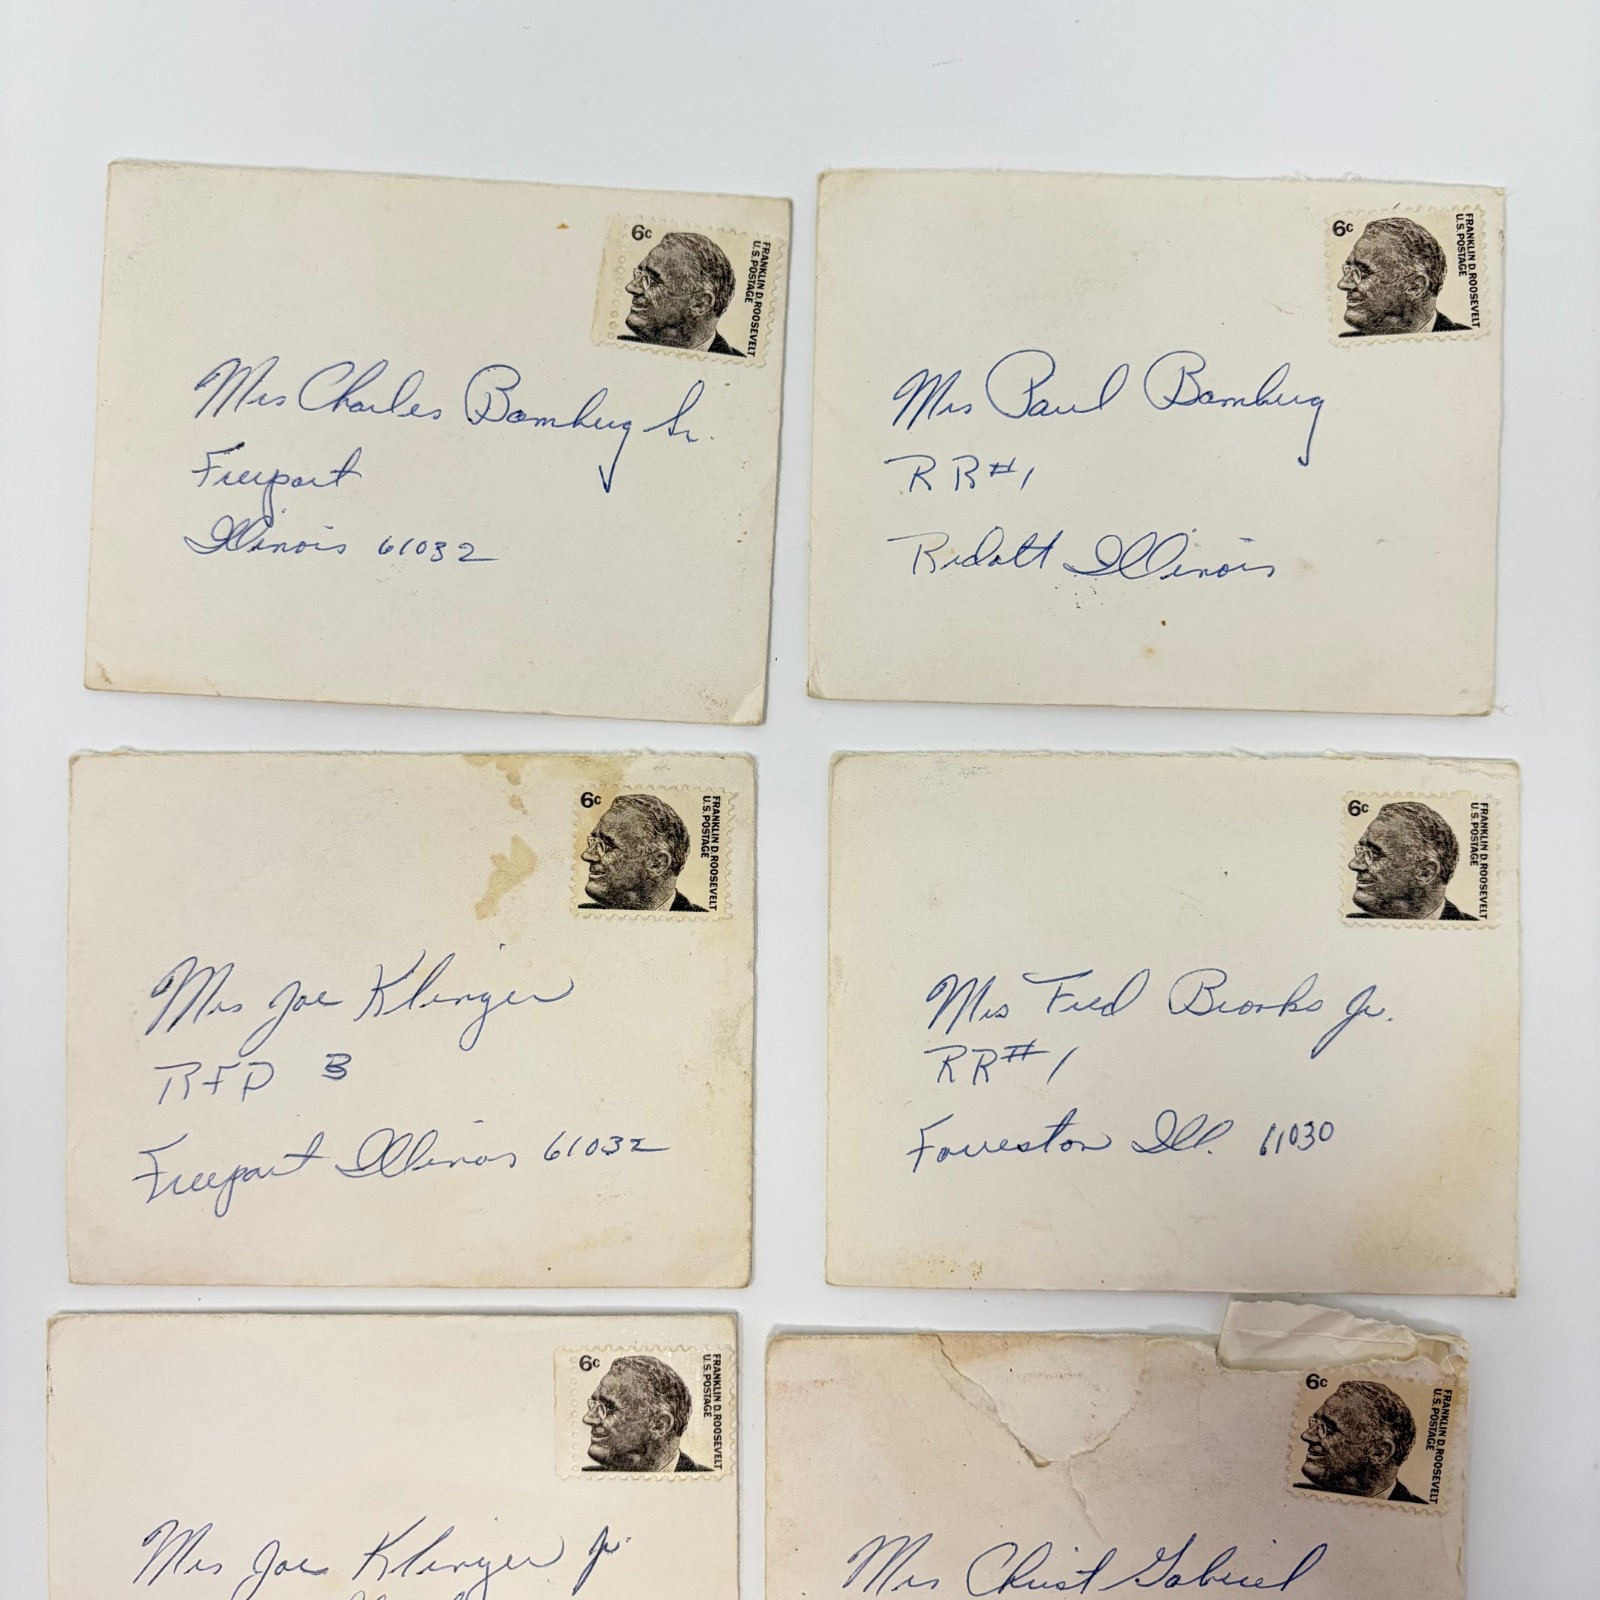 6c
FRANKLIN D. ROOSEVELT
U.S. POSTAGE
Mrs Charles Bamberg Sr.
Freeport
Illinois 61032
6c
FRANKLIN D. ROOSEVELT
U.S. POSTAGE
Mrs Paul Bamberg
RR#1
Ridott Illinois
6c
FRANKLIN D. ROOSEVELT
U.S. POSTAGE
Mrs Joe Klinger
RFD 3
Freeport Illinois 61032
6c
FRANKLIN D. ROOSEVELT
U.S. POSTAGE
Mrs Fred Brooks Jr.
RR#1
Forreston Ill. 61030
6c
FRANKLIN D. ROOSEVELT
U.S. POSTAGE
Mrs Joe Klinger Jr
6c
FRANKLIN D. ROOSEVELT
U.S. POSTAGE
Mrs Christ Gabriel